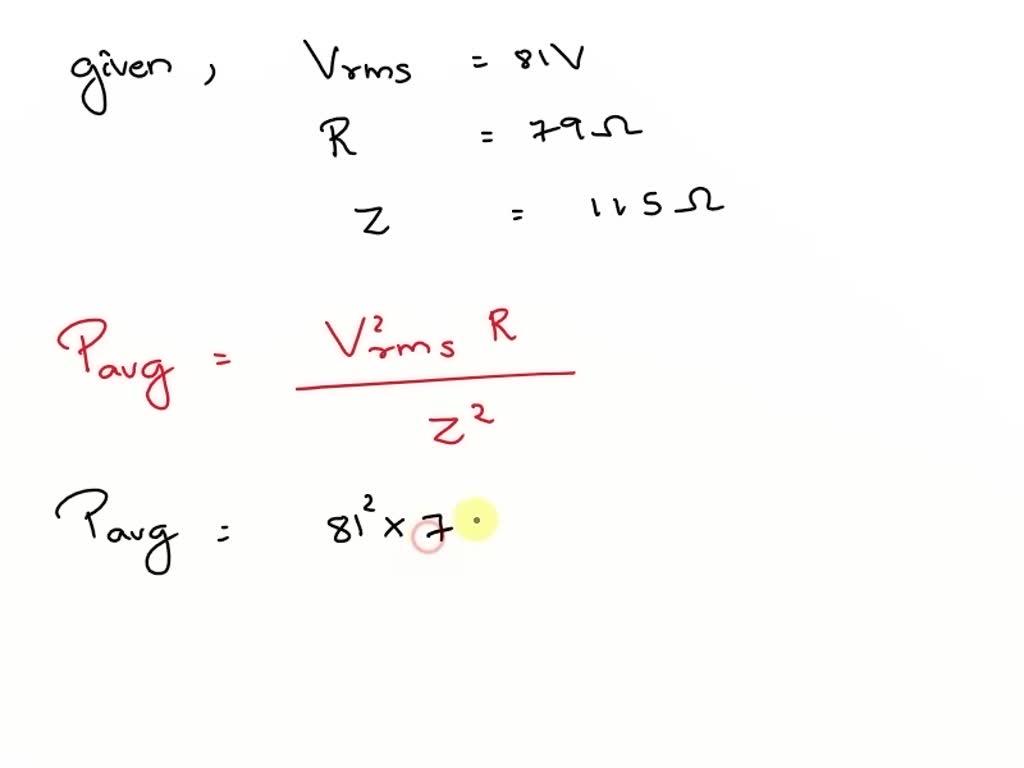 given, Vrms = 81V
R = 79Ω
Z = 115Ω
Pavg = V²rms R / Z²
Pavg = 81² × 7